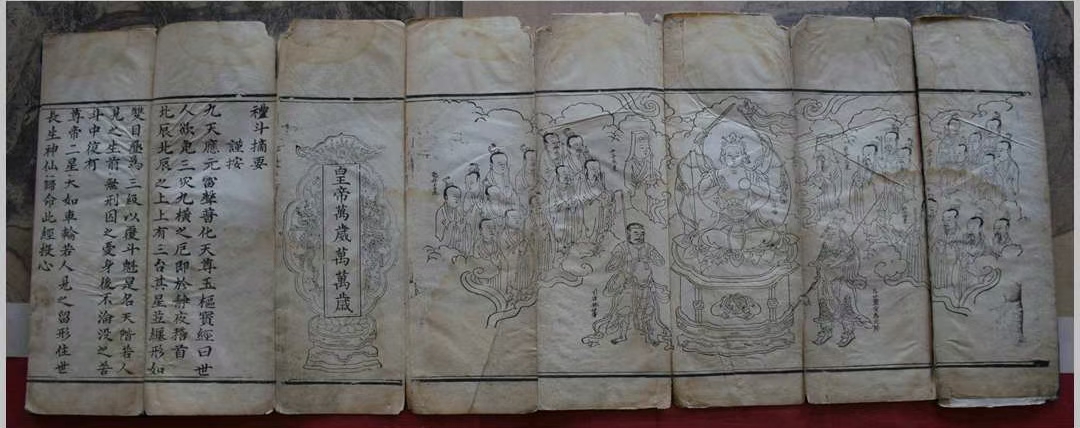 皇帝萬歲萬萬歲
禮斗摘要
謹按
九天應元雷聲普化天尊玉樞寶經曰世
人欲免三灾九橫之厄即於靜夜稽首
北辰北辰之上上有三台其星並躔形如
雙目疊為三級以覆斗魁是名天階若人
見之生前無刑囚之憂身後不淪没之苦
斗中復有
尊帝二星大如車輪若人見之留形住世
長生神仙歸命此經投心